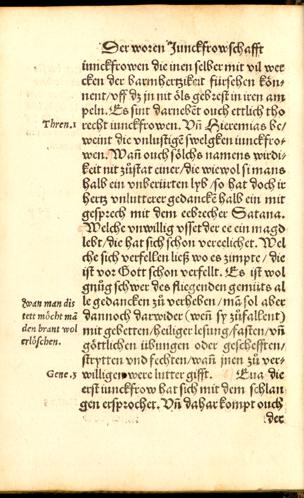 Der woren Junckfrowschafft
iunckfrowen die inen selber mit vil wer
cken der barmhertzikeit fürsehen kön-
nent/vff dz jn nit öls gebrest in iren am
peln. Es sint darnebēt ouch ettlich tho
Thren.1
recht iunckfrowen. Vñ Hieremias be/
weint die vnlustigē swelgkē iunckfro-
wen. Wañ ouch sölchs namens wirdi-
keit nit zůstat einer/die wie wol si mans
halb ein vnberürten lyb/so hat doch ir
hertz vnlutterer gedanckē halb ein mit
gesprech mit dem eebrecher Satana.
Welche vnwillig vsset der ee ein magd
lebt/die hat sich schon vereelichet. Wel
che sich verfellen ließ wo es zimpte/die
ist vor Gott schon verfellt. Es ist wol
gnůg schwer des fliegenden gemüts al
le gedancken zů verheben/mā sol aber
dannoch darwider (weñ sy zůfallent)
mit gebetten/heiliger lesung/fasten/vñ
göttlichen übungen oder geschefften/
strytten vnd fechten/wañ jnen zů ver-
willigen were lutter gifft. Eua die
erst iunckfrow hat sich mit dem schlan
gen ersprochet. Vñ dahar kompt ouch
der
Zwan man dis
tett möcht mā
den brant wol
erlöschen.
Gene.3